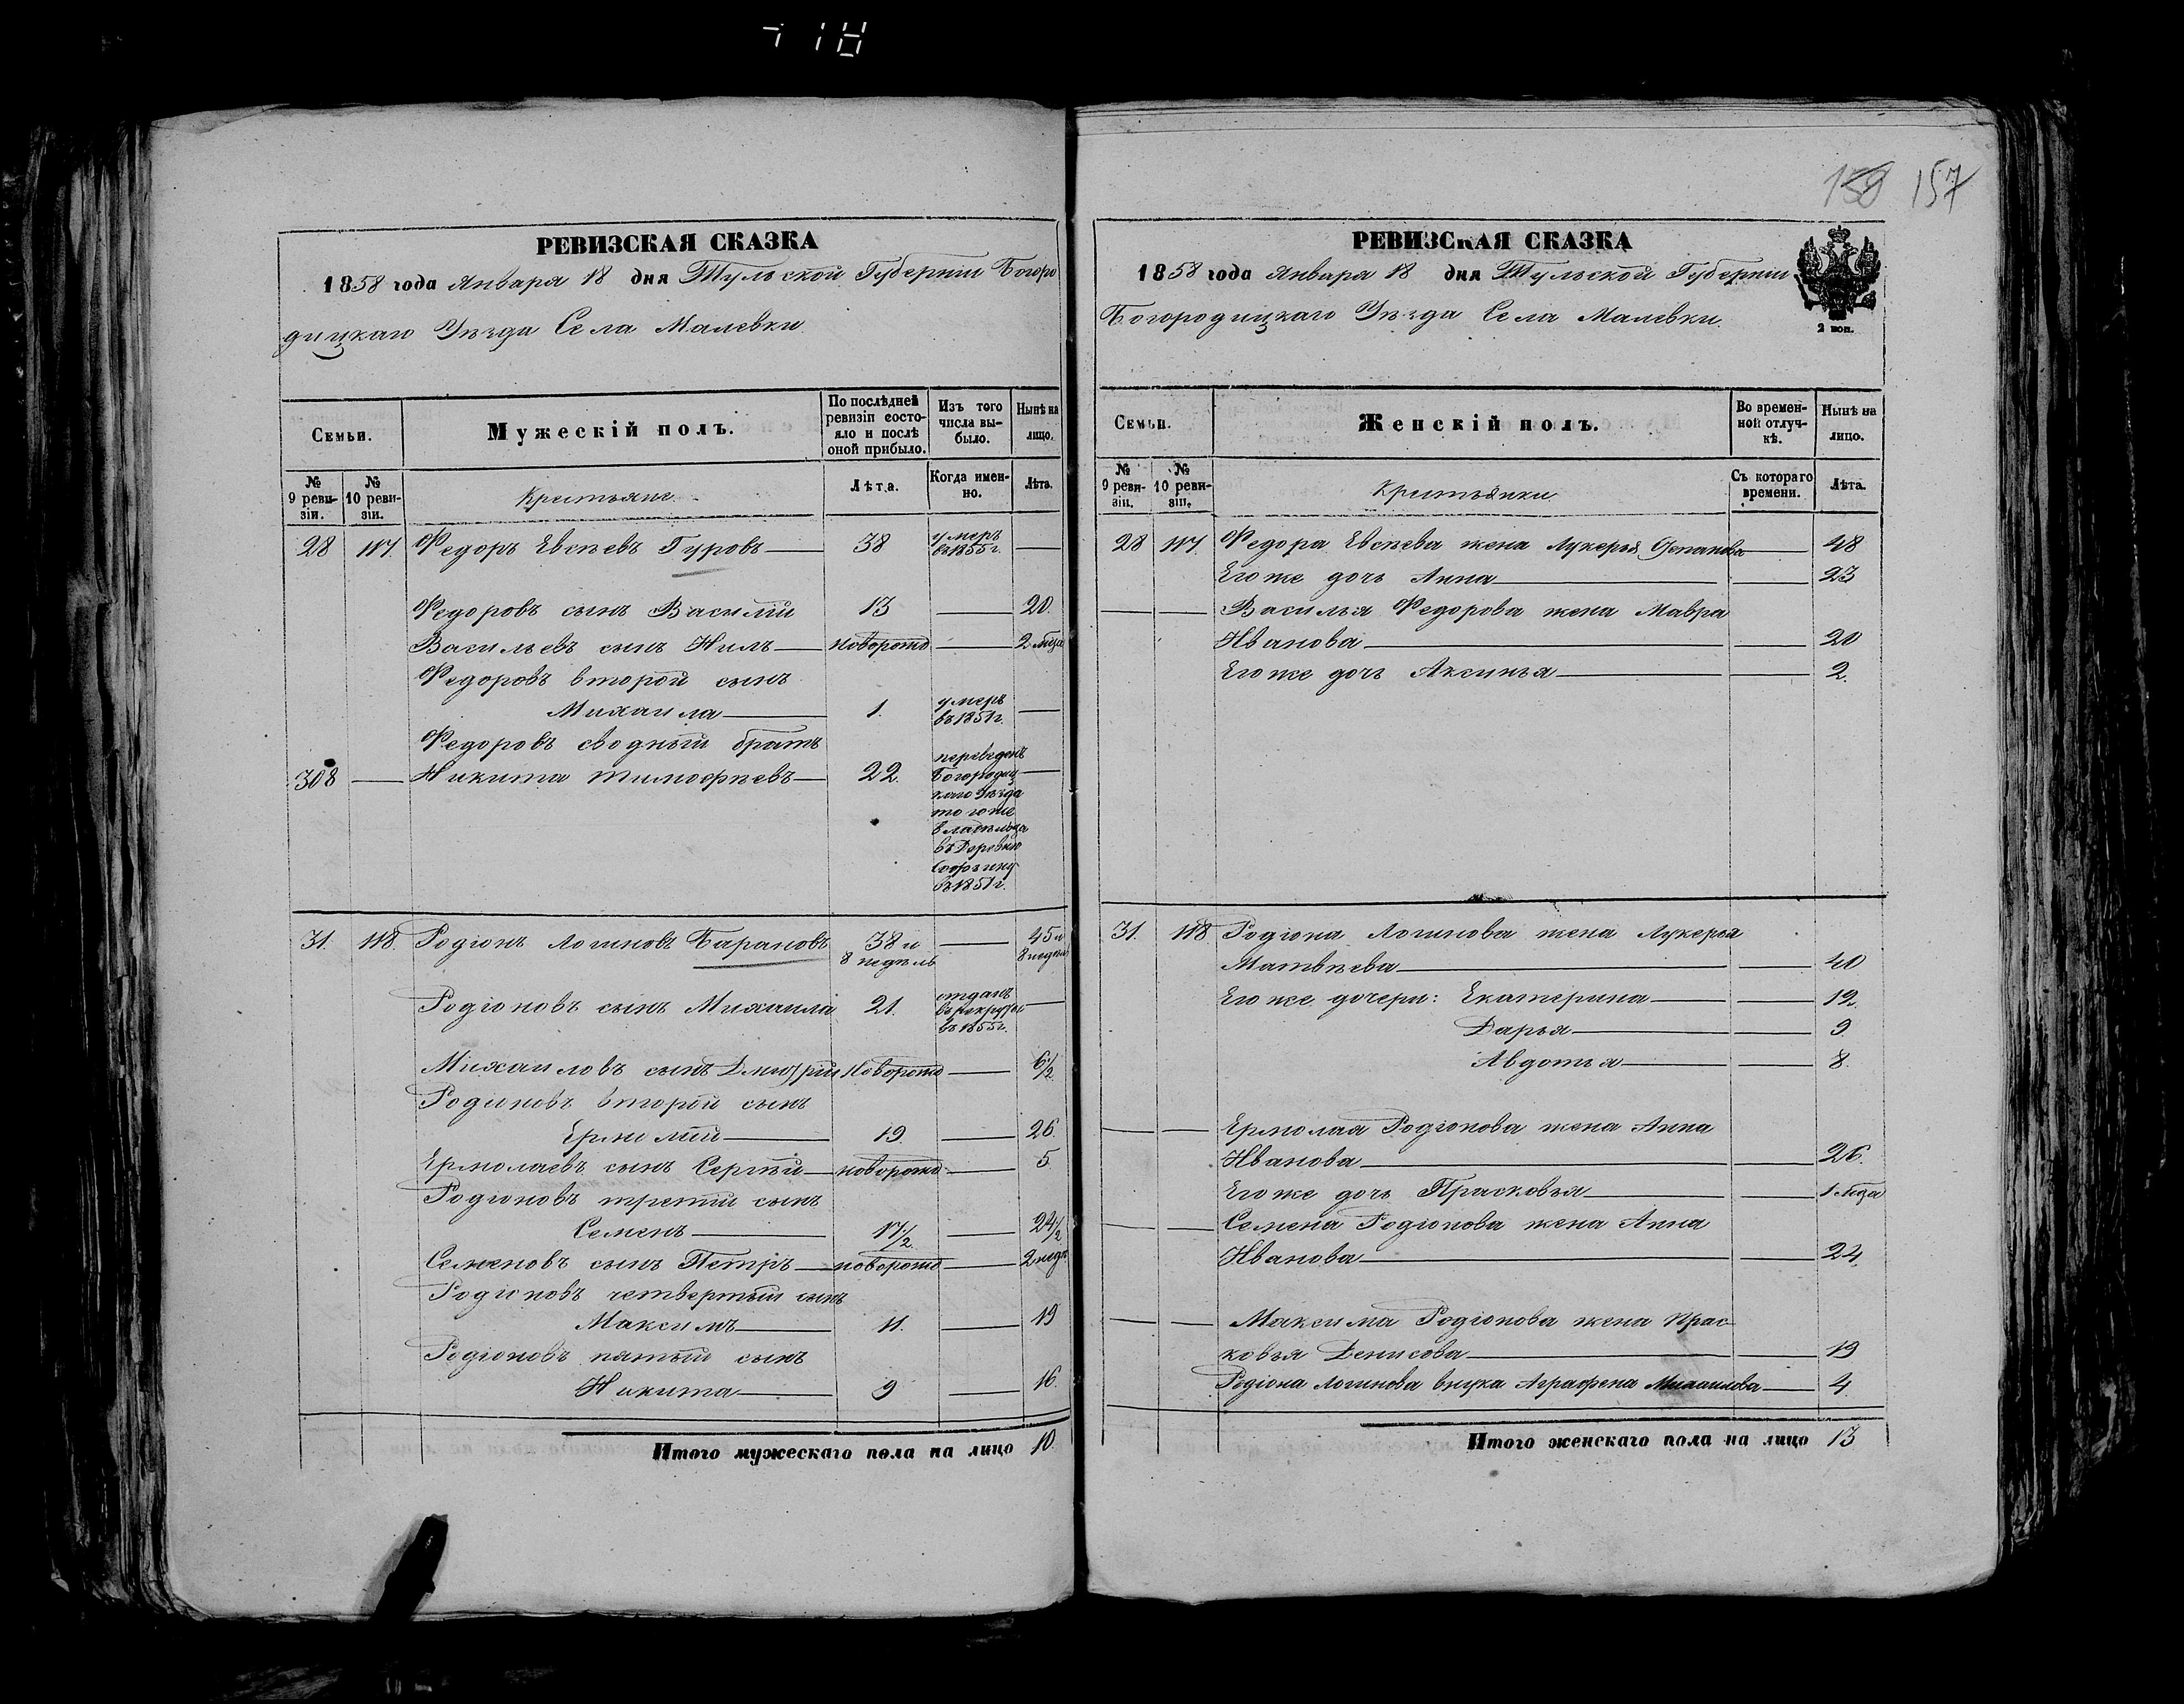 158 157
РЕВИЗСКАЯ СКАЗКА
1858 года Января 18 дня Тульской Губернiи Богоро
дицкаго Уѣзда Села Малевки
Семьи.
Мужескiй полъ.
По послѣдней ревизiи состо-
яло и послѣ оной прибыло.
Изъ того числа вы-
было.
Нынѣ на лицо.
№ 9 реви-
зiи.
№ 10 реви-
зiи.
Крестьяне
Лѣта.
Когда имен-
но.
Лѣта.
28 117. Федоръ Евсѣевъ Гуровъ 38 умеръ въ 1855 г.
Федоровъ сынъ Василiй 13 20.
Васильевъ сынъ Нилъ новорожд 2 мѣца
Федоровъ второй сынъ
Михаила 1. умеръ въ 1851 г.
Федоровъ сводный братъ
308 Никита Тимофѣевъ 22. переведенъ
Богородиц
каго Уѣзда
того же
владѣльца
въ Деревню
въ 1851 г.
31. 118. Родiонъ Логиновъ Барановъ 38 и 8 недѣль 45 и 8 недѣль
Родiоновъ сынъ Михаила 21. отданъ
въ рекруты
въ 1855 г.
Михаиловъ сынъ Дмитрiй новорожд 6 1/2
Родионовъ второй сынъ
Ермолай 19. 26.
Ермолаевъ сынъ Сергѣй новорожд 5.
Родiоновъ третiй сынъ
Семенъ 17 1/2. 24 1/2
Семеновъ сынъ Петръ новорожд 2 нед.
Родiоновъ четвертый сынъ
Максимъ 11. 19
Родiоновъ пятый сынъ
Никита 9 16.
Итого мужескаго пола на лицо 10.
РЕВИЗСКАЯ СКАЗКА
1858 года Января 18 дня Тульской Губернiи
Богородицкаго Уѣзда Села Малевки.
2 коп.
Семьи.
Женскiй полъ.
Во времен-
ной отлуч-
кѣ.
Нынѣ на лицо.
№ 9 реви-
зiи.
№ 10 реви-
зiи.
Крестьянки
Съ котораго времени.
Лѣта.
28 117. Федора Евсѣева жена Лукерья Степанова 48
Его же дочь Анна 23
Василья Федорова жена Мавра
Иванова 20
Его же дочь Аксинья 2.
31. 118 Родiона Логинова жена Лукерья
Матвѣева 40
Его же дочери: Екатерина 12.
Дарья 9
Авдотья 8.
Ермолая Родiонова жена Анна
Иванова 26.
Его же дочь Прасковья 1 мѣца
Семена Родiонова жена Анна
Иванова 24.
Максима Родiонова жена Прас
ковья Денисова 19
Родiона Логинова внука Аграфена Михаилова 4
Итого женскаго пола на лицо 13